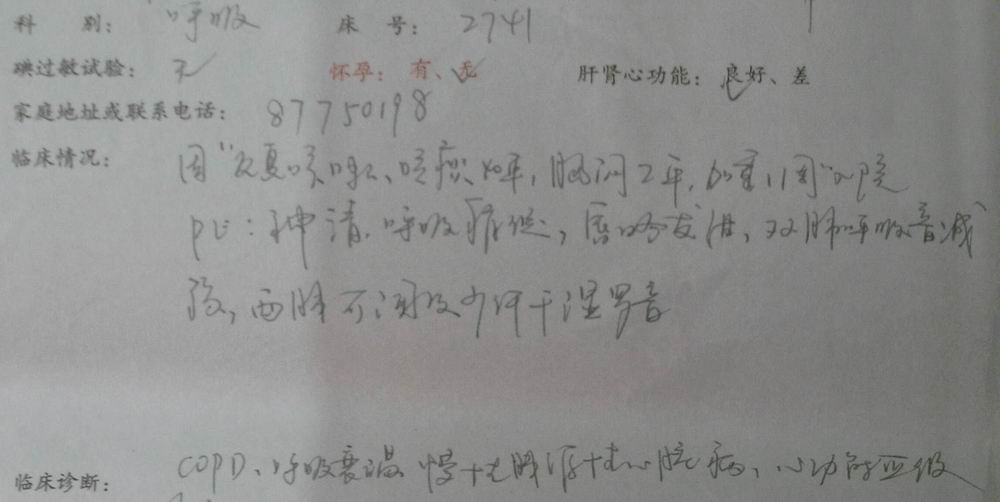 科 别: 呼吸 床 号: 2741
碘过敏试验: 无 怀孕: 有、无 肝肾心功能: 良好、差
家庭地址或联系电话: 87750198
临床情况: 因"反复咳嗽、咳痰 年,胸闷2年,加重1周"入院
PE: 神清,呼吸 ,唇 发绀,双肺呼吸音减
弱,两肺可闻及少许干湿罗音
临床诊断: COPD、呼吸衰竭 慢性肺源性心脏病、心功能 级